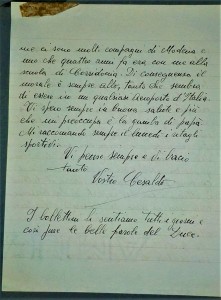 me ci sono molti compagni di Modena e
uno che quattro anni fa era con me alla
scuola di Corridonia. Di conseguenza il
morale è sempre alto, tanto che sembra
di essere in un qualsiasi Aeroporto d'Italia.
Vi spero sempre in buona salute e più
che mi preoccupa è la gamba di papà.
Mi raccomando sempre il lunedì i ritagli
sportivi.
Vi penso sempre e Vi bacio
tanto
Vostro Osvaldo
I bollettini li sentiamo tutti i giorni e
così pure le belle parole del Duce.